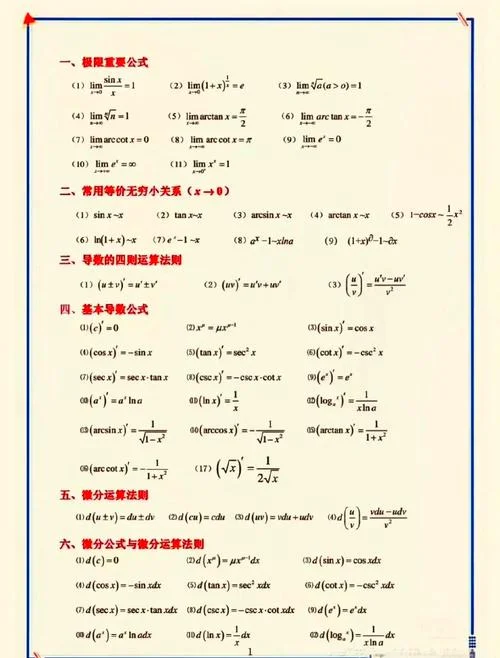 一、极限重要公式
(1) lim_{x→0} sin x / x = 1 (2) lim_{x→0} (1+x)^{1/x} = e (3) lim_{n→∞} ⁿ√a (a>o) = 1
(4) lim_{n→∞} ⁿ√n = 1 (5) lim_{x→∞} arctan x = π/2 (6) lim_{x→-∞} arc tan x = -π/2
(7) lim_{x→∞} arc cot x = 0 (8) lim_{x→-∞} arc cot x = π (9) lim_{x→-∞} e^x = 0
(10) lim_{x→∞} e^x = ∞ (11) lim_{x→0⁺} x^x = 1
二、常用等价无穷小关系(x→0)
(1) sin x ~x (2) tan x~x (3) arcsin x ~x (4) arctan x ~x (5) 1-cosx ~ 1/2 x²
(6) ln(1+x) ~x (7) e^x -1 ~x (8) a^x -1~xlna (9) (1+x)^∂ -1~∂x
三、导数的四则运算法则
(1) (u±v)' = u'±v' (2) (uv)' = u'v+uv' (3) (u/v)' = (u'v-uv')/v²
四、基本导数公式
⑴(c)'=0 ⑵x^μ = μx^{μ-1} ⑶(sin x)' = cos x
⑷(cos x)' = -sin x ⑸(tan x)' = sec² x ⑹(cot x)' = -csc² x
⑺(sec x)' = sec x·tan x ⑻(csc x)' = -csc x·cot x ⑼(e^x)' = e^x
⑽(a^x)' = a^x ln a ⑾(ln x)' = 1/x ⑿(log_a^x)' = 1/(x ln a)
⒀(arcsin x)' = 1/√(1-x²) ⒁(arccos x)' = -1/√(1-x²) ⒂(arctan x)' = 1/(1+x²)
⒃(arc cot x)' = -1/(1+x²) (17)(√x)' = 1/(2√x)
五、微分运算法则
⑴d(u±v) = du±dv ⑵d(cu) = cdu ⑶d(uv) = vdu+udv ⑷d(u/v) = (vdu-udv)/v²
六、微分公式与微分运算法则
⑴d(c)=0 ⑵d(x^μ) = μx^{μ-1}dx ⑶d(sin x) = cos xdx
⑷d(cos x) = -sin xdx ⑸d(tan x) = sec² xdx ⑹d(cot x) = -csc² xdx
⑺d(sec x) = sec x·tan xdx ⑻d(csc x) = -csc x·cot xdx ⑼d(e^x) = e^x dx
⑽d(a^x) = a^x ln adx ⑾d(ln x) = 1/x dx ⑿d(log_a^x) = 1/(x ln a) dx
1